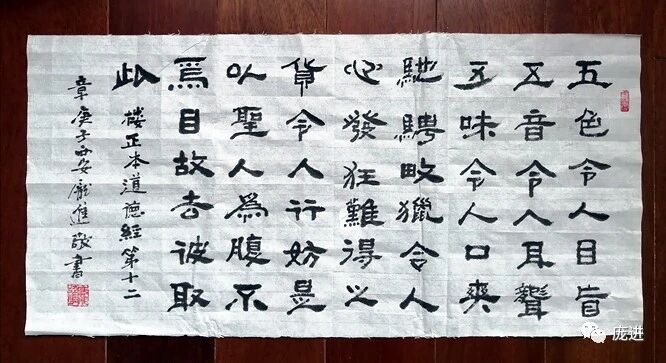 五色令人目盲
五音令人耳聾
五味令人口爽
馳騁畋獵令人
心發狂難得之
貨令人行妨是
以聖人為腹不
為目故去彼取
此
楼正本道德經第十二
章庚子西安龐進敬書
庞进